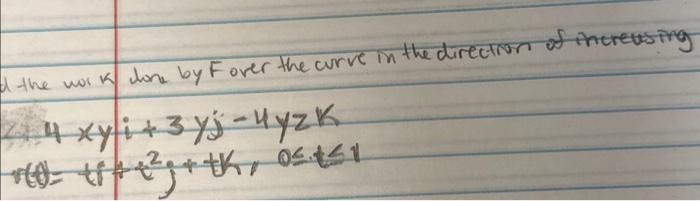 the work done by F over the curve in the direction of increasing
4 xyi + 3yj - 4yzK
r(t) = ti + t²j + tK, 0≤t≤1